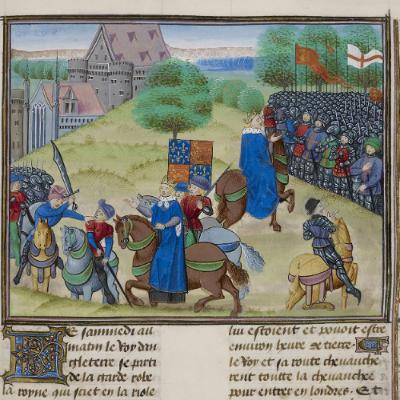 Le samnedi au
matin le Roy dan
gleterre se parti
de la garde robe
la royne qui siet en la riole
lui estoient et povoit estre
environ heure de tierce.
le Roy et sa route chevauche
rent toutte la chevauchee
pour entrer en londres. Et